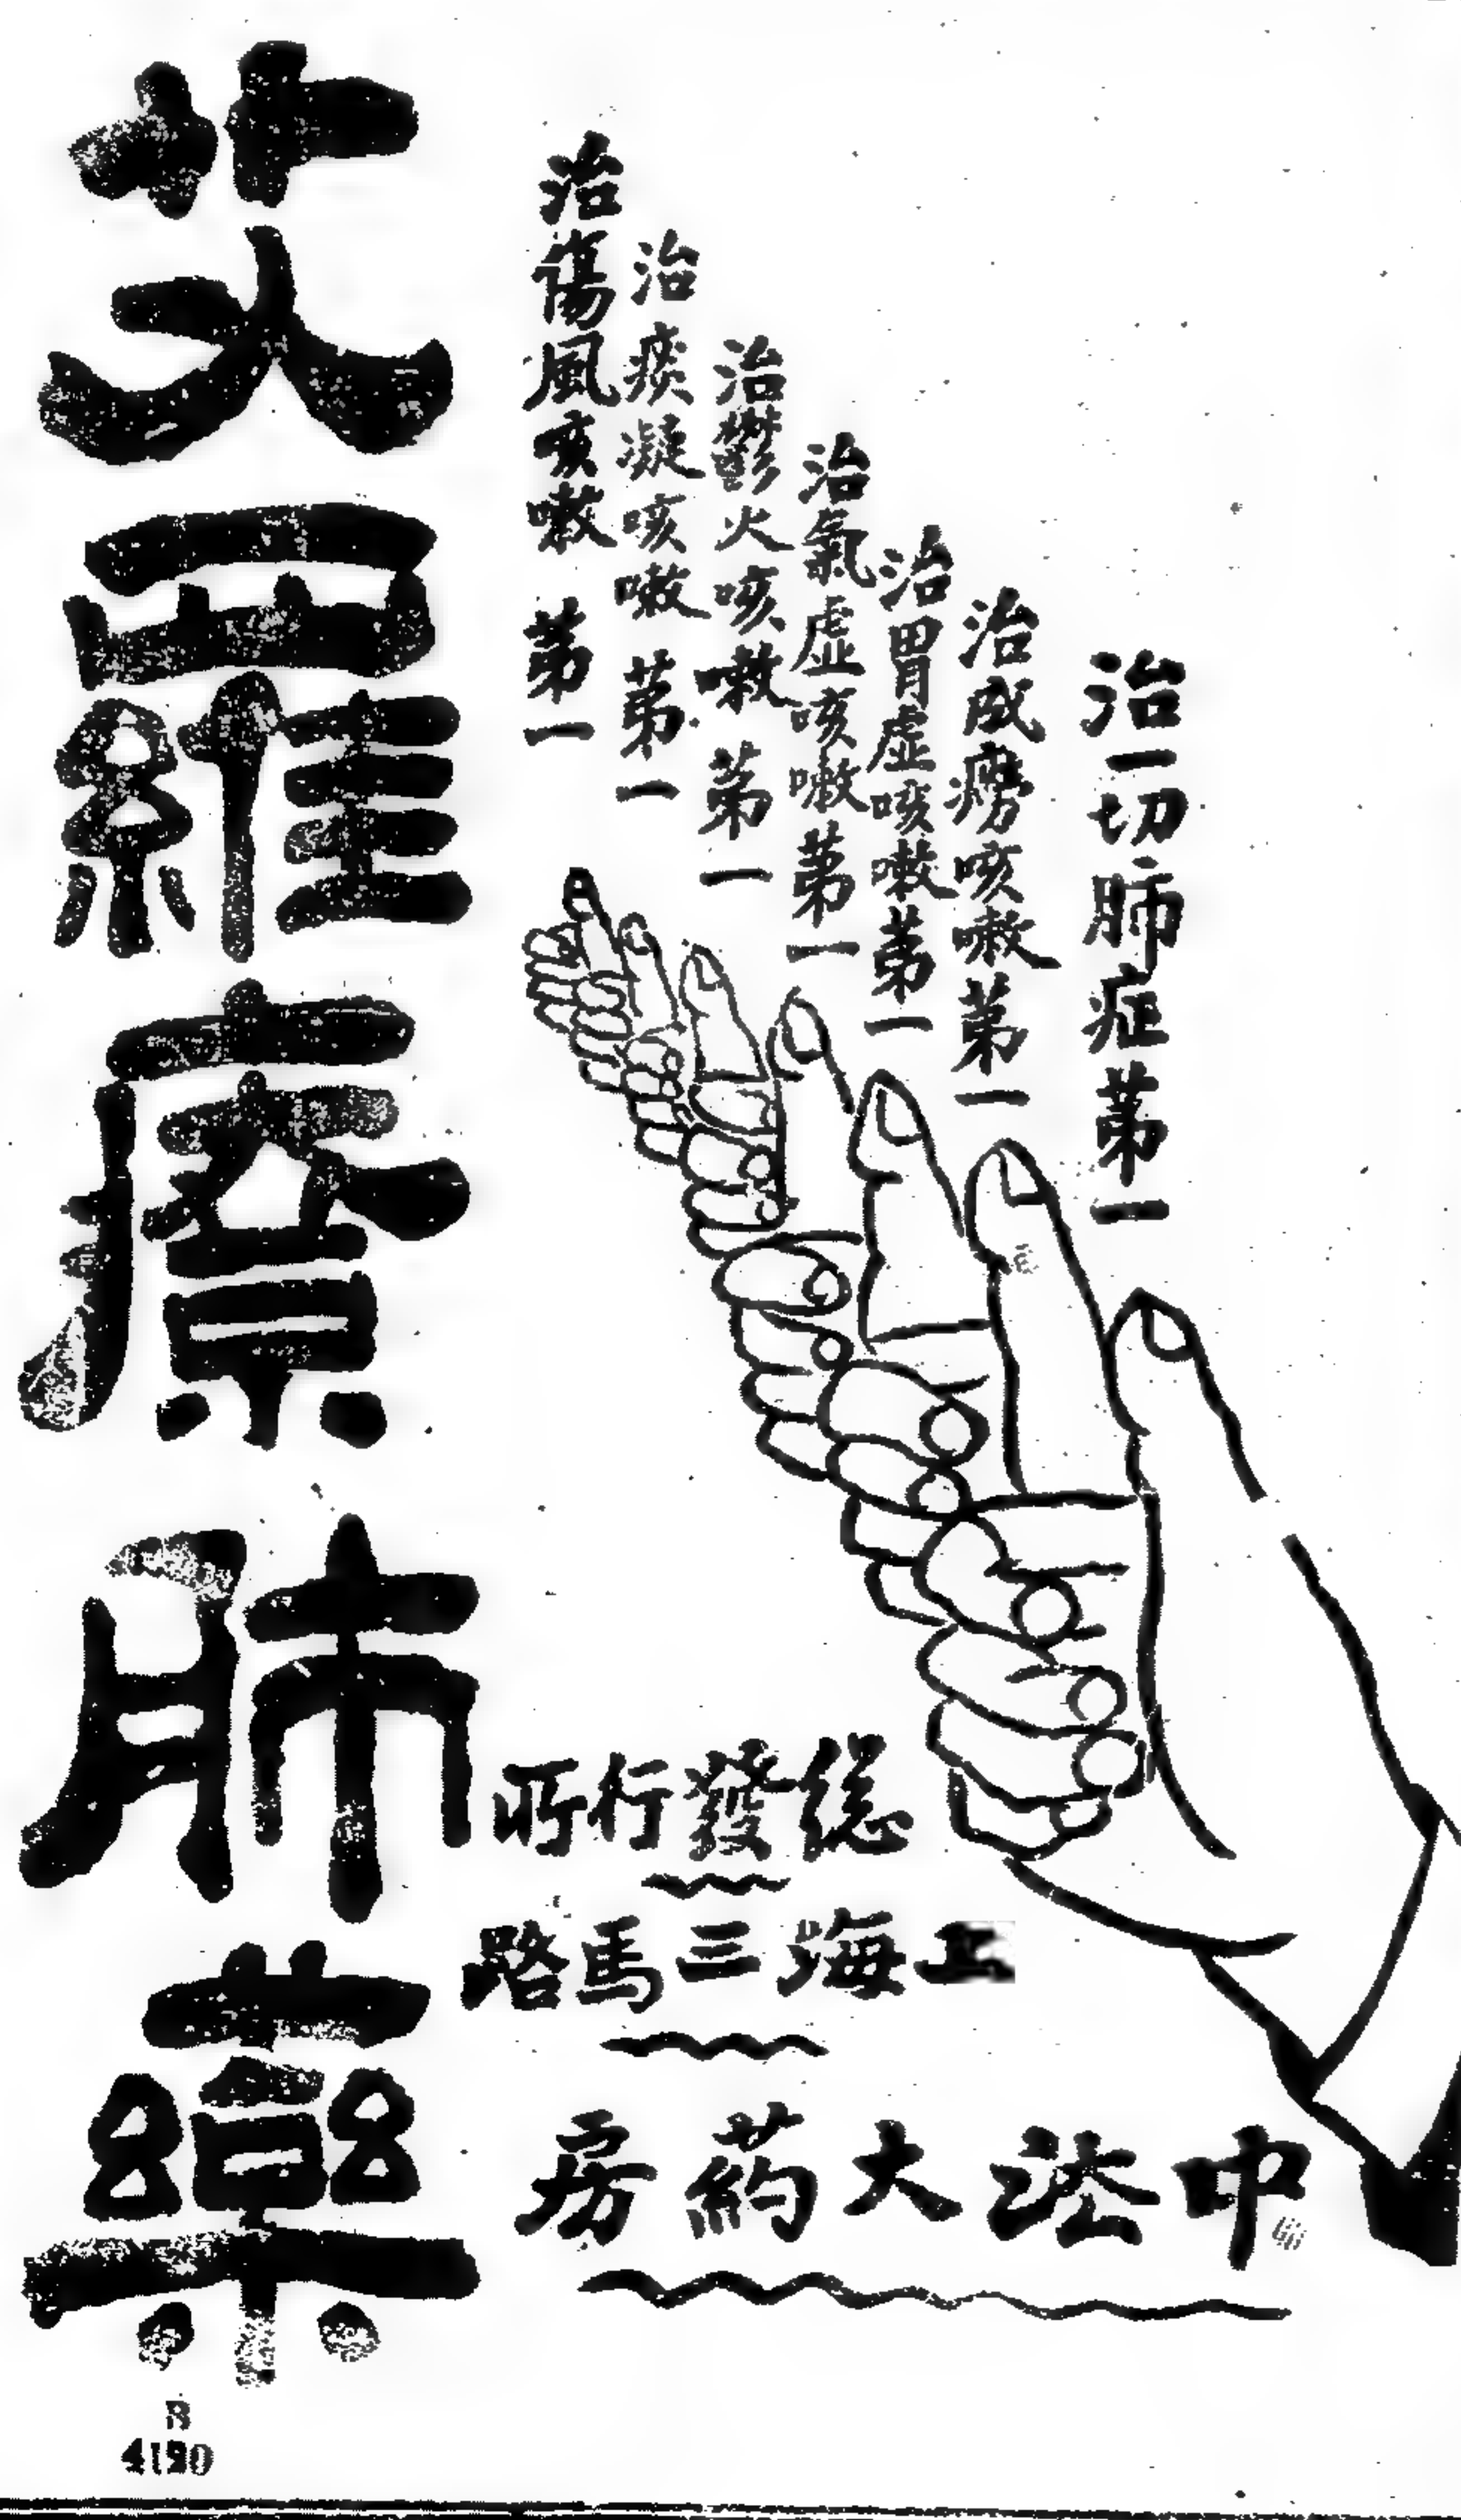 治一切肺症苐一
治成癆咳嗽苐一
治胃虛咳嗽苐一
治氣虛咳嗽苐一
治鬱火咳嗽苐一
治痰凝咳嗽苐一
治傷風咳嗽苐一
總發行所
上海三馬路
中法大葯房
艾羅療肺藥
B
4120